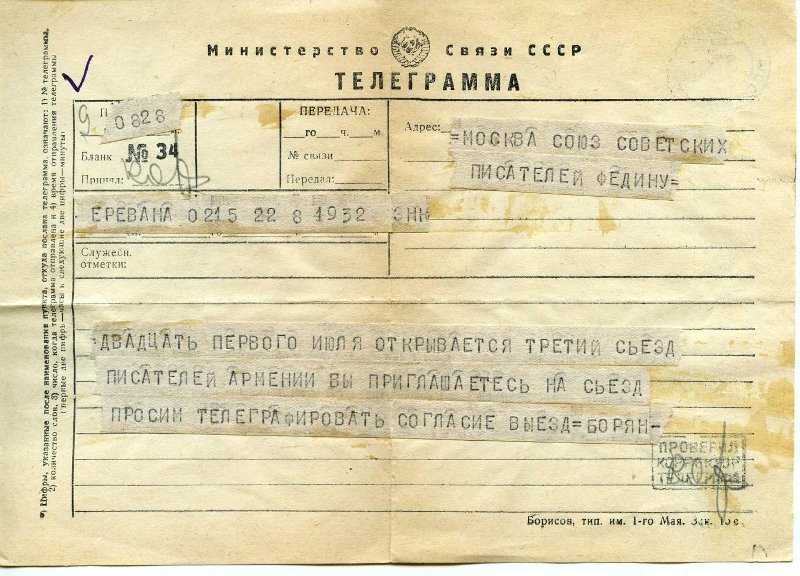 Министерство Связи СССР
ТЕЛЕГРАММА
П
0828
Бланк № 34
Принял:
ПЕРЕДАЧА:
го ч. м.
№ связи
Передал:
Адрес:
=МОСКВА СОЮЗ СОВЕТСКИХ
ПИСАТЕЛЕЙ ФЕДИНУ=
ЕРЕВАНА 0215 22 8 1932 ЗНК
Служебн.
отметки:
ДВАДЦАТЬ ПЕРВОГО ИЮЛЯ ОТКРЫВАЕТСЯ ТРЕТИЙ СЬЕЗД
ПИСАТЕЛЕЙ АРМЕНИИ ВЫ ПРИГЛАШАЕТЕСЬ НА СЬЕЗД
ПРОСИМ ТЕЛЕГРАФИРОВАТЬ СОГЛАСИЕ ВЫЕЗД=БОРЯН-
ПРОВЕРИЛ
Борисов, тип. им. 1-го Мая. Зак.
*) Цифры, указанные после наименования пункта, откуда послана телеграмма, означают: 1) № телеграммы,
2) количество слов, 3) число, когда телеграмма отправлена и 4) время отправления телеграммы
(первые две цифры—часы и следующие две цифры—минуты).